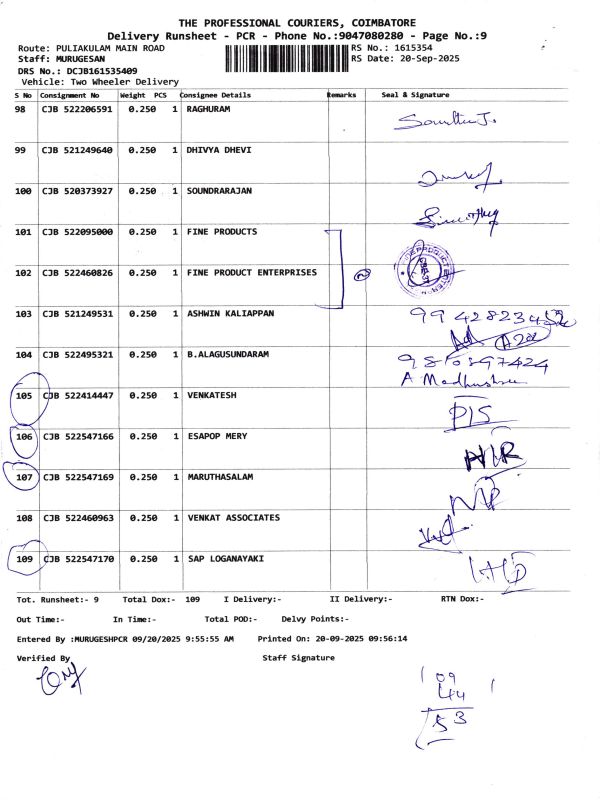 THE PROFESSIONAL COURIERS, COIMBATORE
Delivery Runsheet - PCR - Phone No.:9047080280 - Page No.:9
Route: PULIAKULAM MAIN ROAD RS No.: 1615354
Staff: MURUGESAN RS Date: 20-Sep-2025
DRS No.: DCJB161535409
Vehicle: Two Wheeler Delivery
S No Consignment No Weight PCS Consignee Details Remarks Seal & Signature
98 CJB 522206591 0.250 1 RAGHURAM
99 CJB 521249640 0.250 1 DHIVYA DHEVI
100 CJB 520373927 0.250 1 SOUNDRARAJAN
101 CJB 522095000 0.250 1 FINE PRODUCTS
102 CJB 522460826 0.250 1 FINE PRODUCT ENTERPRISES 2
103 CJB 521249531 0.250 1 ASHWIN KALIAPPAN
104 CJB 522495321 0.250 1 B.ALAGUSUNDARAM
105 CJB 522414447 0.250 1 VENKATESH
106 CJB 522547166 0.250 1 ESAPOP MERY
107 CJB 522547169 0.250 1 MARUTHASALAM
108 CJB 522460963 0.250 1 VENKAT ASSOCIATES
109 CJB 522547170 0.250 1 SAP LOGANAYAKI
Tot. Runsheet:- 9 Total Dox:- 109 I Delivery:- II Delivery:- RTN Dox:-
Out Time:- In Time:- Total POD:- Delvy Points:-
Entered By :MURUGESHPCR 09/20/2025 9:55:55 AM Printed On: 20-09-2025 09:56:14
Verified By Staff Signature
109
44
53